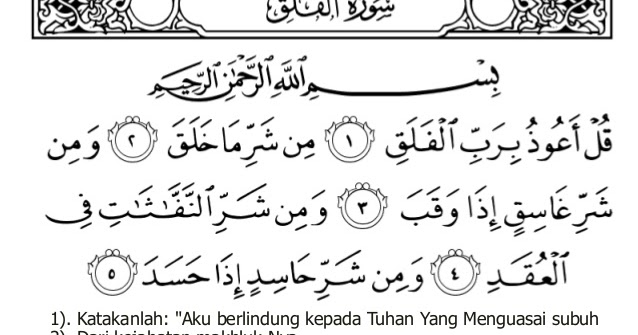 سُورَةُ الْفَلَقِ
بِسْمِ اللَّهِ الرَّحْمَٰنِ الرَّحِيمِ
قُلْ أَعُوذُ بِرَبِّ ٱلْفَلَقِ ١ مِن شَرِّ مَا خَلَقَ ٢ وَمِن
شَرِّ غَاسِقٍ إِذَا وَقَبَ ٣ وَمِن شَرِّ ٱلنَّفَّٰثَٰتِ فِى
ٱلْعُقَدِ ٤ وَمِن شَرِّ حَاسِدٍ إِذَا حَسَدَ ٥
1). Katakanlah: "Aku berlindung kepada Tuhan Yang Menguasai subuh
2). Dari kejahatan makhluk-Nya